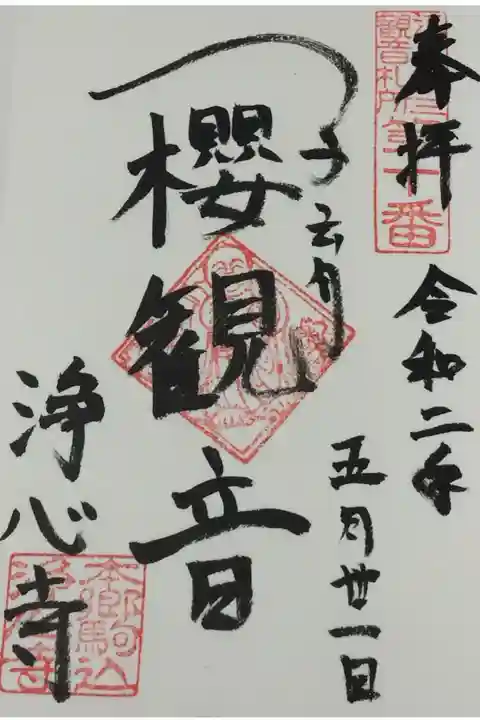 奉拝
令和二年
五月廿一日
子育
櫻観音
浄心寺
観音札所
第十番
本郷駒込
浄心寺